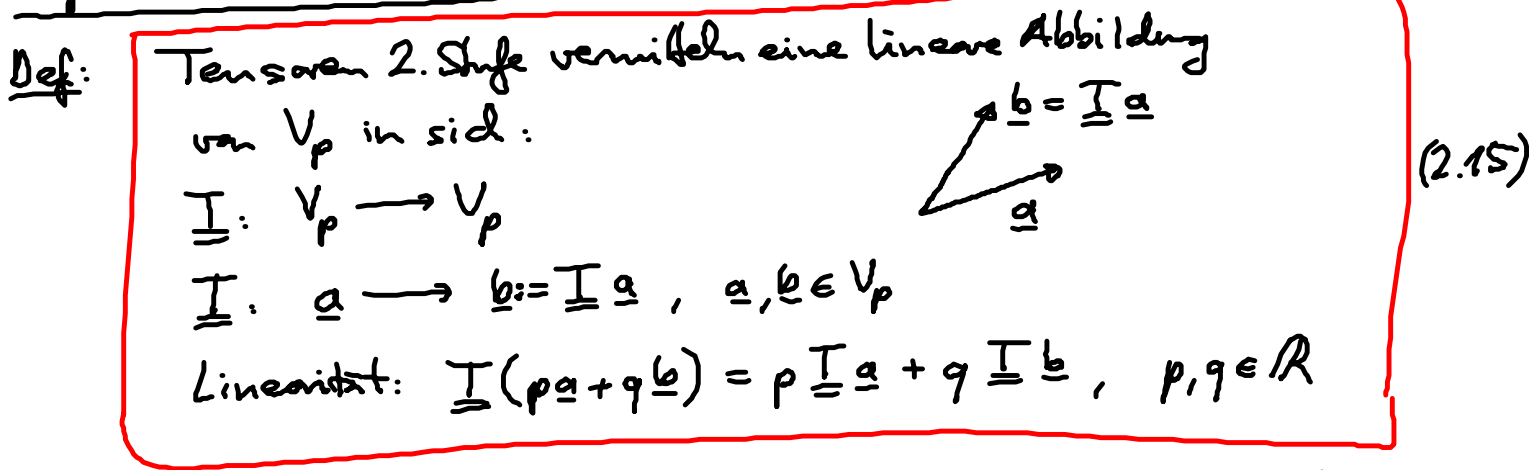 Def: Tensoren 2. Stufe vermitteln eine lineare Abbildung
von V_p in sich:
b = T a
a
T: V_p → V_p
(2.15)
T: a → b := T a , a, b ∈ V_p
Linearität: T(p a + q b) = p T a + q T b , p, q ∈ ℝ